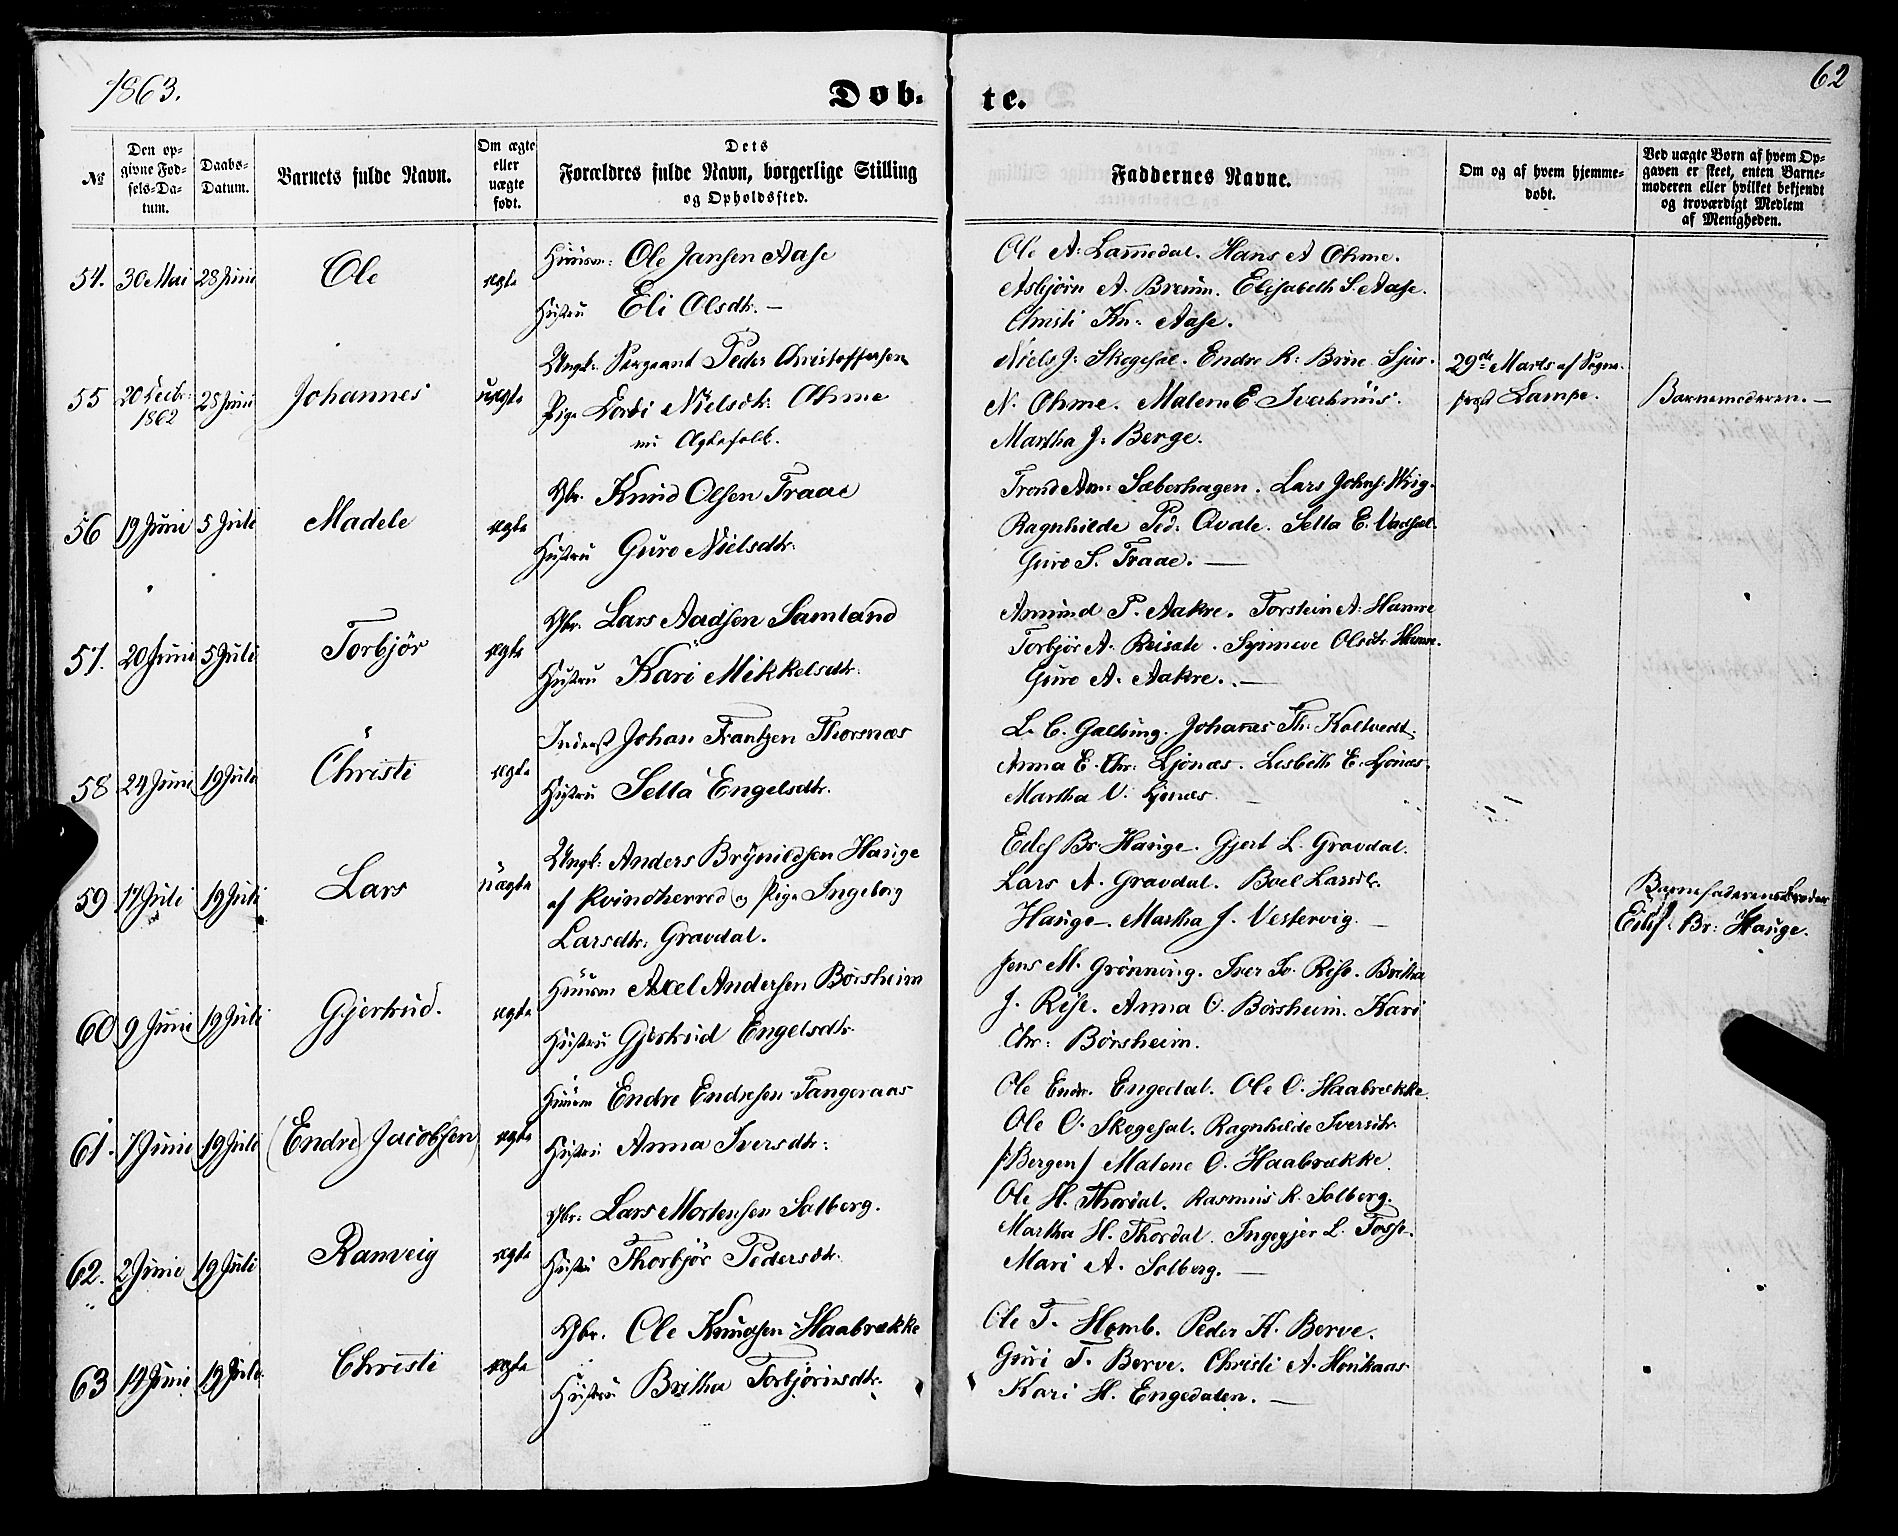 1863.
Døb-
te.
62
№
Den op-
givne Fød-
sels-Da-
tum.
Daabs-
Datum.
Barnets fulde Navn.
Om ægte
eller
uægte
født.
Dets
Forældres fulde Navn, borgerlige Stilling
og Opholdssted.
Faddernes Navne.
Om og af hvem hjemme-
døbt.
Ved uægte Børn af hvem Op-
gaven er skeet, enten Barne-
moderen eller hvilket bekjendt
og troværdigt Medlem
af Menigheden.
54. 30 Mai 28 Juni Ole ægte
Huusm: Ole Jansen Aase
Hustru Eli Olsdtr. —
Ole A. Lammedal. Hans A Ohme.
Asbjørn A. Bruun. Elisabeth S. Aase.
Christi Kn. Aase.
55 20 Decbr 1862 28 Juni Johannes uægte
Ungk. Sergeant Peder Christoffersen
Pige Nielsdtr. Ohme
nu Ægtefolk.
Niels J. Skogesal. Endre R. Brue Sjur.
N. Ohme. Malene E
Martha J. Berge.
29de Marts af Sogne-
prest Lampe.
Barnemoderen. —
56 19 Juni 5 Juli Madele ægte
Gbr. Knud Olsen Traae
Hustru Guro Nielsdtr.
Trond Am: Sæberhagen. Lars Johns.
Ragnhilde Ped. Qvale. Sella E.
Guro S. Traae. —
57. 20 Juni 5 Juli Torbjør ægte
Gbr. Lars Aadsen Samland
Hustru Kari Mikkelsdtr.
Amund P. Aakre. Torstein A. Hamre
Torbjør A. Reisæte. Synneve Olsdtr Hamre.
Guro A. Aakre. —
58 24 Juni 19 Juli Christi ægte
Inderst Johan Frantzen Thorsnæs
Hustru Sella Engelsdtr.
L. C. Galtung. Johanes Th. Koltvedt.
Anna E. Chr. Ljonæs. Lisbeth E. Ljonæs.
Martha V. Ljonæs.
59 17 Juli 19 Juli Lars uægte
Ungk. Anders Brynildsen Hauge
af Kvindherred og Pige Ingeborg
Larsdtr. Gravdal.
Eilef Br. Hauge. Gjert L. Gravdal.
Lars A. Gravdal. Boel Larsdtr.
Hauge. Martha J. Vestervig. —
Barnefaderens Broder
Eilef. Br. Hauge.
60 9 Juni 19 Juli Gjertrud. ægte
Huusm Axel Andersen Børsheim
Hustru Gjertrud Engelsdtr.
Jens M. Grønning. Iver Iv. Rise. Britha
J. Rise. Anna O. Børsheim. Kari
Chr. Børsheim.
61. 7 Juni 19 Juli (Endre) Jacobsen ægte
Huusm Endre Endresen Tangeraas
Hustru Anna Iversdtr.
Ole Endr. Engedal. Ole O. Haabrække.
Ole O. Skogesal. Ragnhilde Iversdtr.
/Bergen/ Malene O. Haabrække.
62. 2 Juni 19 Juli Ranveig ægte
Gbr. Lars Mortensen Solberg.
Hustru Thorbjør Pedersdtr.
Ole H. Thordal. Rasmus R. Solberg.
Martha H. Thordal. Ingegjer L. Fosse.
Mari A. Solberg. —
63 14 Juni 19 Juli. Christi ægte
Gbr. Ole Knudsen Haabrække
Hustru Britha Torbjørnsdtr.
Ole T. Homb. Peder K. Berve.
Guri T. Berve. Christi A. Houkaas.
Kari H. Engedalen. —